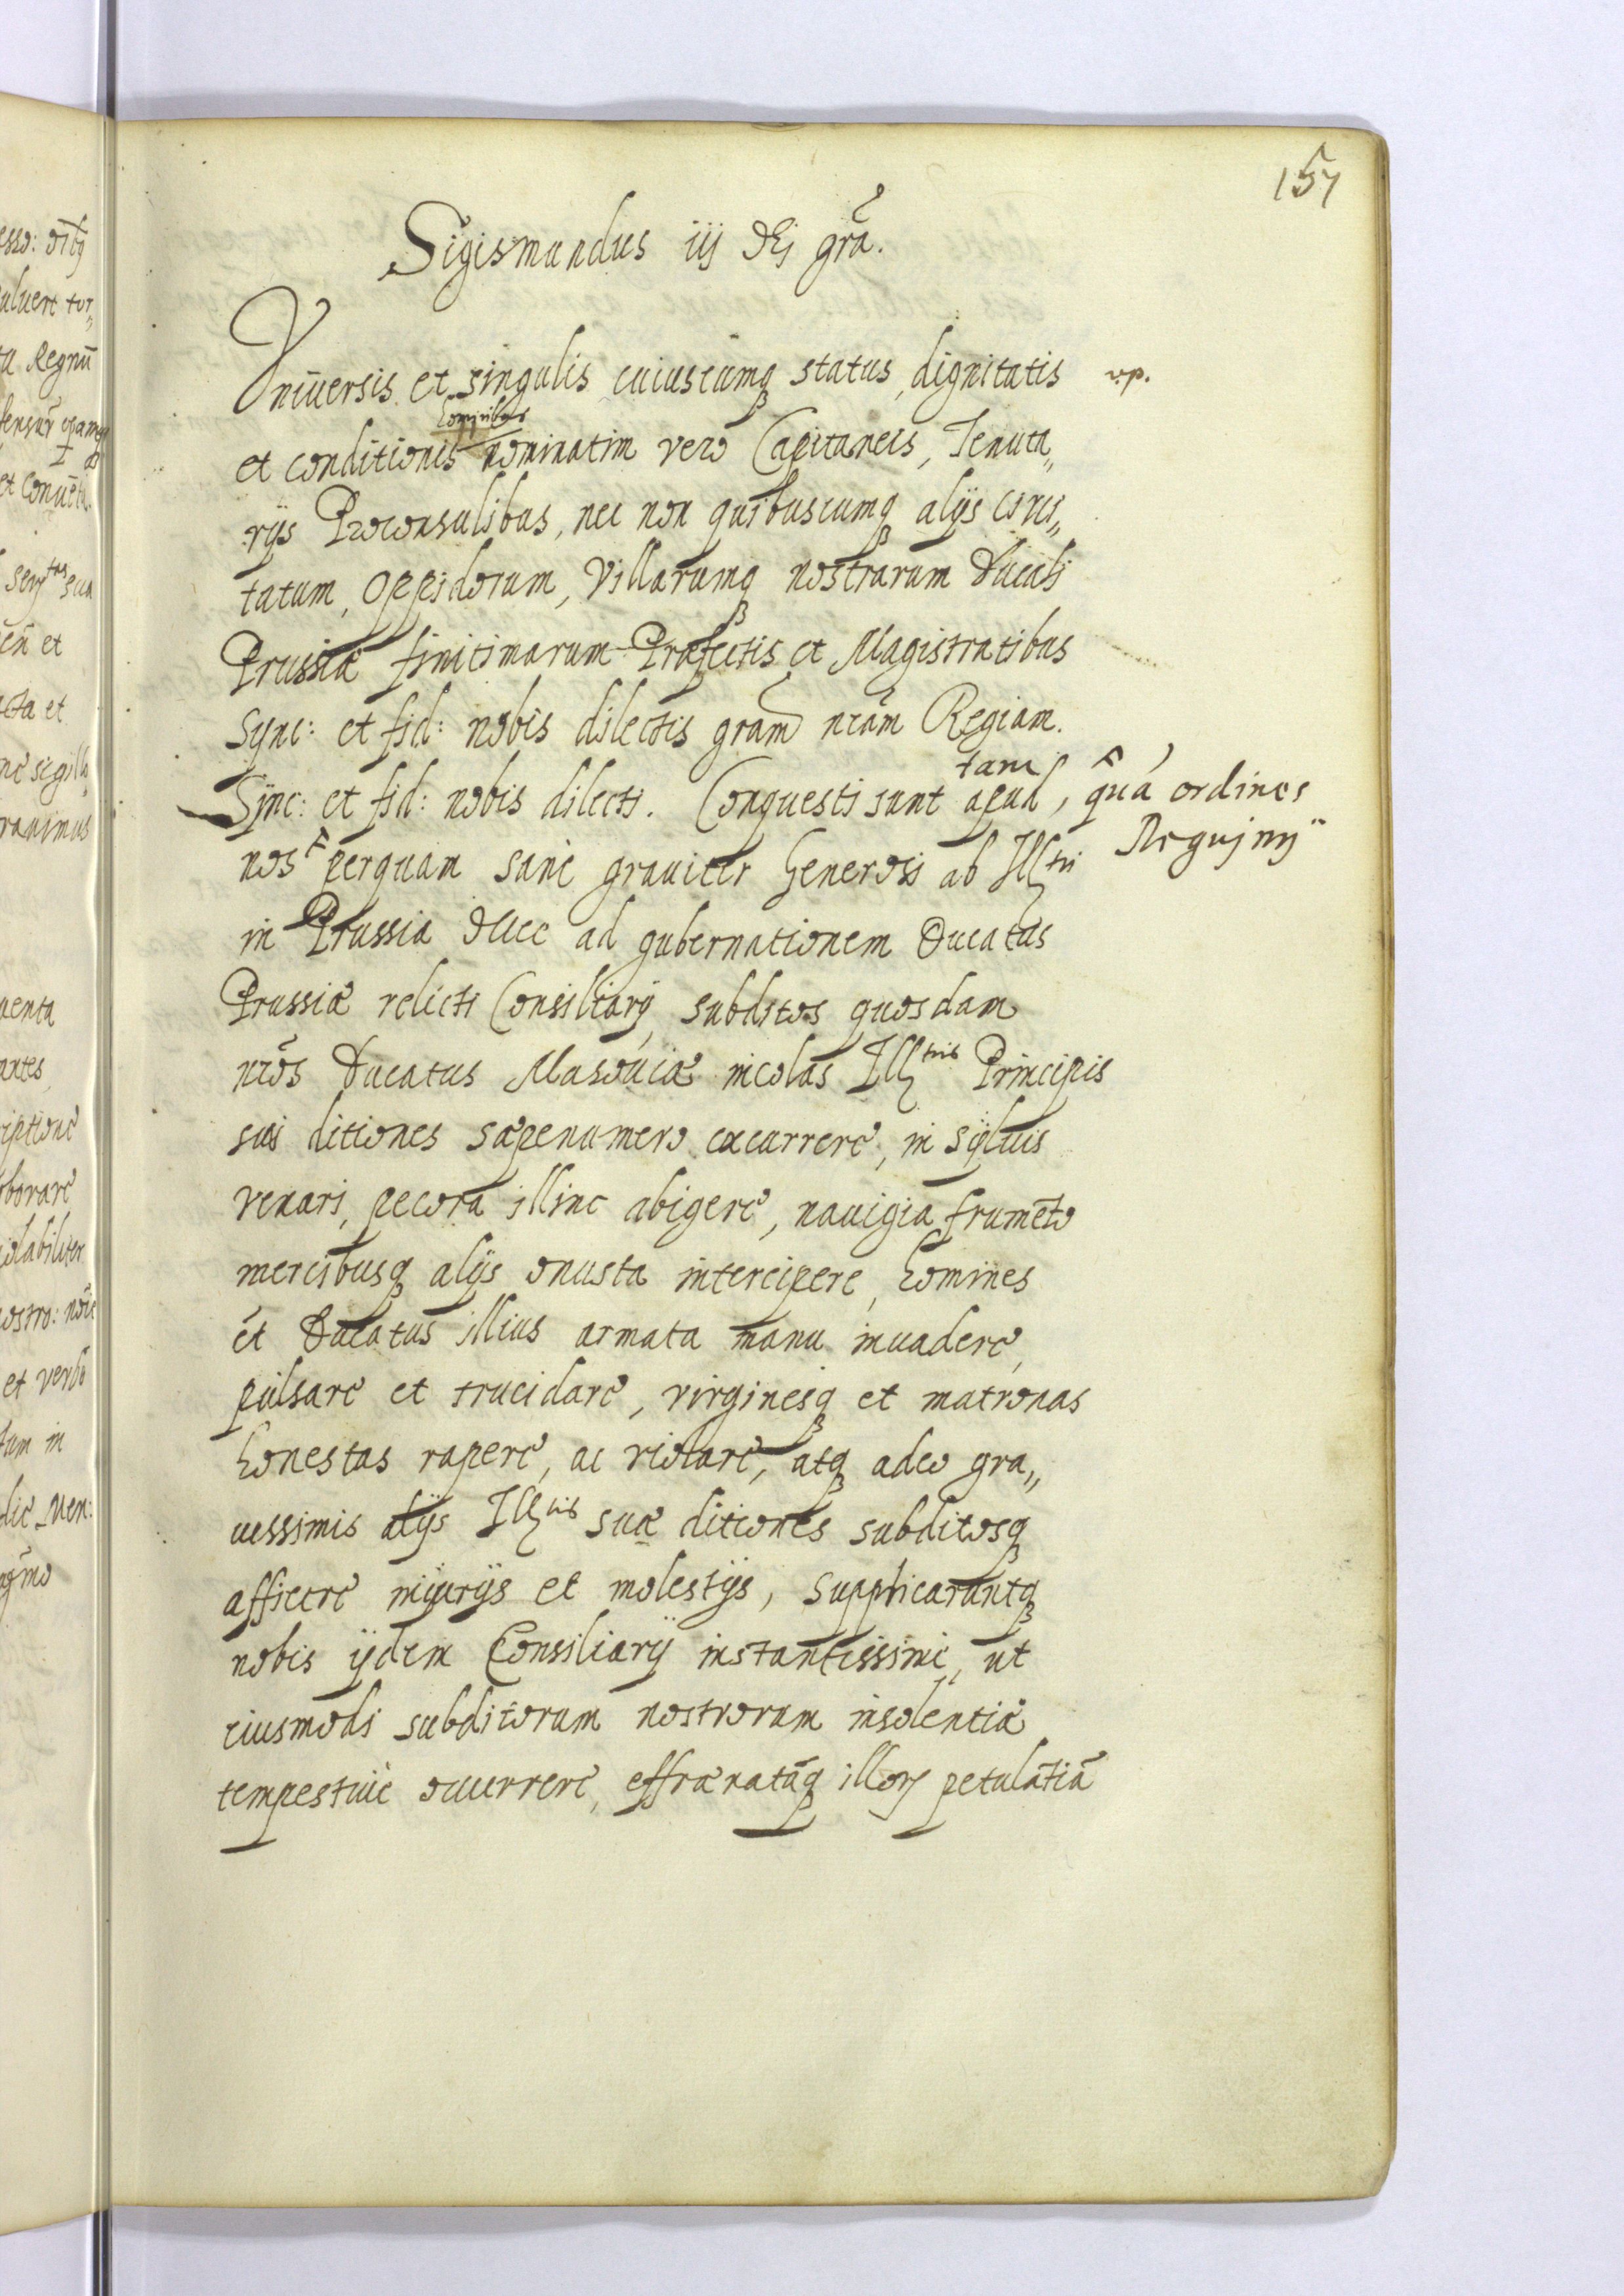 157
Sigismundus iij Dei grã.
Vniuersis et singulis cuiuscumq status, dignitatis
v.p.
hominibus
et conditionis nominatim vero Capitaneis, Tenuta„
rijs Proconsulibus, nec non quibuscumq alijs Ciui„
tatum, Oppidorum, Villarumq nostrarum Ducati
Prussiæ finitimarum Præfectis et Magistratibus
Sync: et fid: nobis dilectis grãm nrãm Regiam.
tam
Sync: et fid: nobis dilecti. Conquesti sunt apud, quà ordines
nos perquam sanè grauiter Generosi ab Ill tri
Regni nri
in Prussia Duce ad gubernationem Ducatus
Prussiæ relicti Consiliarij subditos quosdam
nrõs Ducatus Masouiæ incolas Ill tris Principis
sui ditiones sæpenumero excurrere, in syluis
venari, pecora illinc abigere, nauigia frumẽto
mercibusq alijs onusta intercipere, homines
et Ducatus illius armata manu inuadere,
pulsare et trucidare, virginesq et matronas
honestas rapere, ac violare, atq adeo gra„
uissimis alijs Ill tis suæ ditiones subditosq
afficere iniurijs et molestijs, supplicaruntq
nobis ijdem Consiliarij instantissimè, ut
eiusmodi subditorum nostrorum insolentiæ
tempestiuè occurrere, effrænatãq illorũ petulãtiã